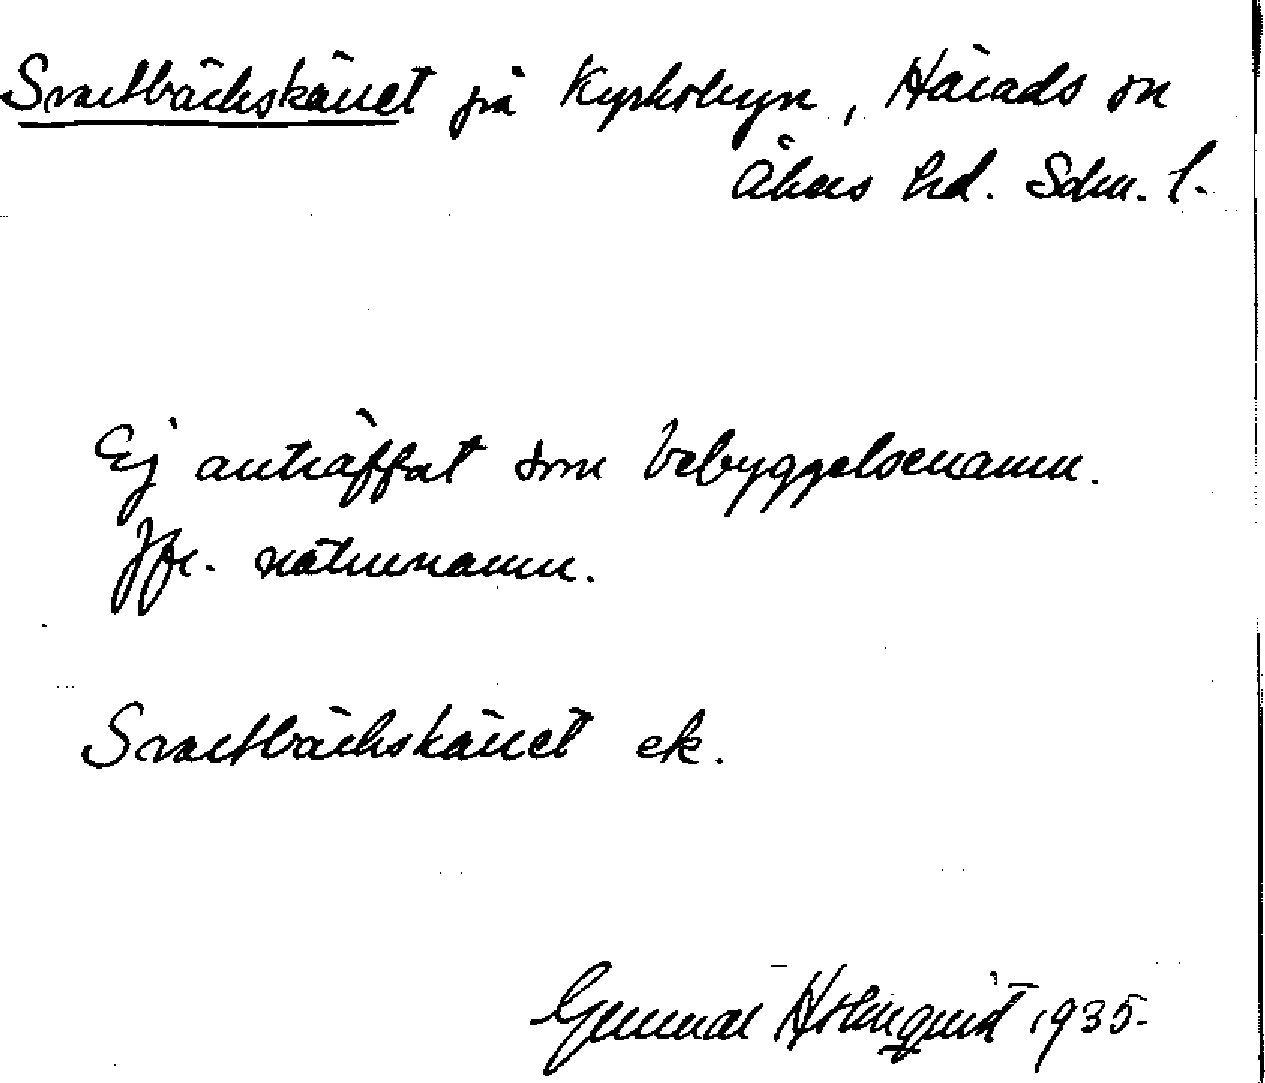 Svartbäckskärret på Kyrkobyn, Härads sn
Åkers hd. Södm. l.
Ej anträffat som bebyggelsenamn.
Jfr. naturnamn.
Svartbäckskärret ek.
Gunnar Holmquist 1935.